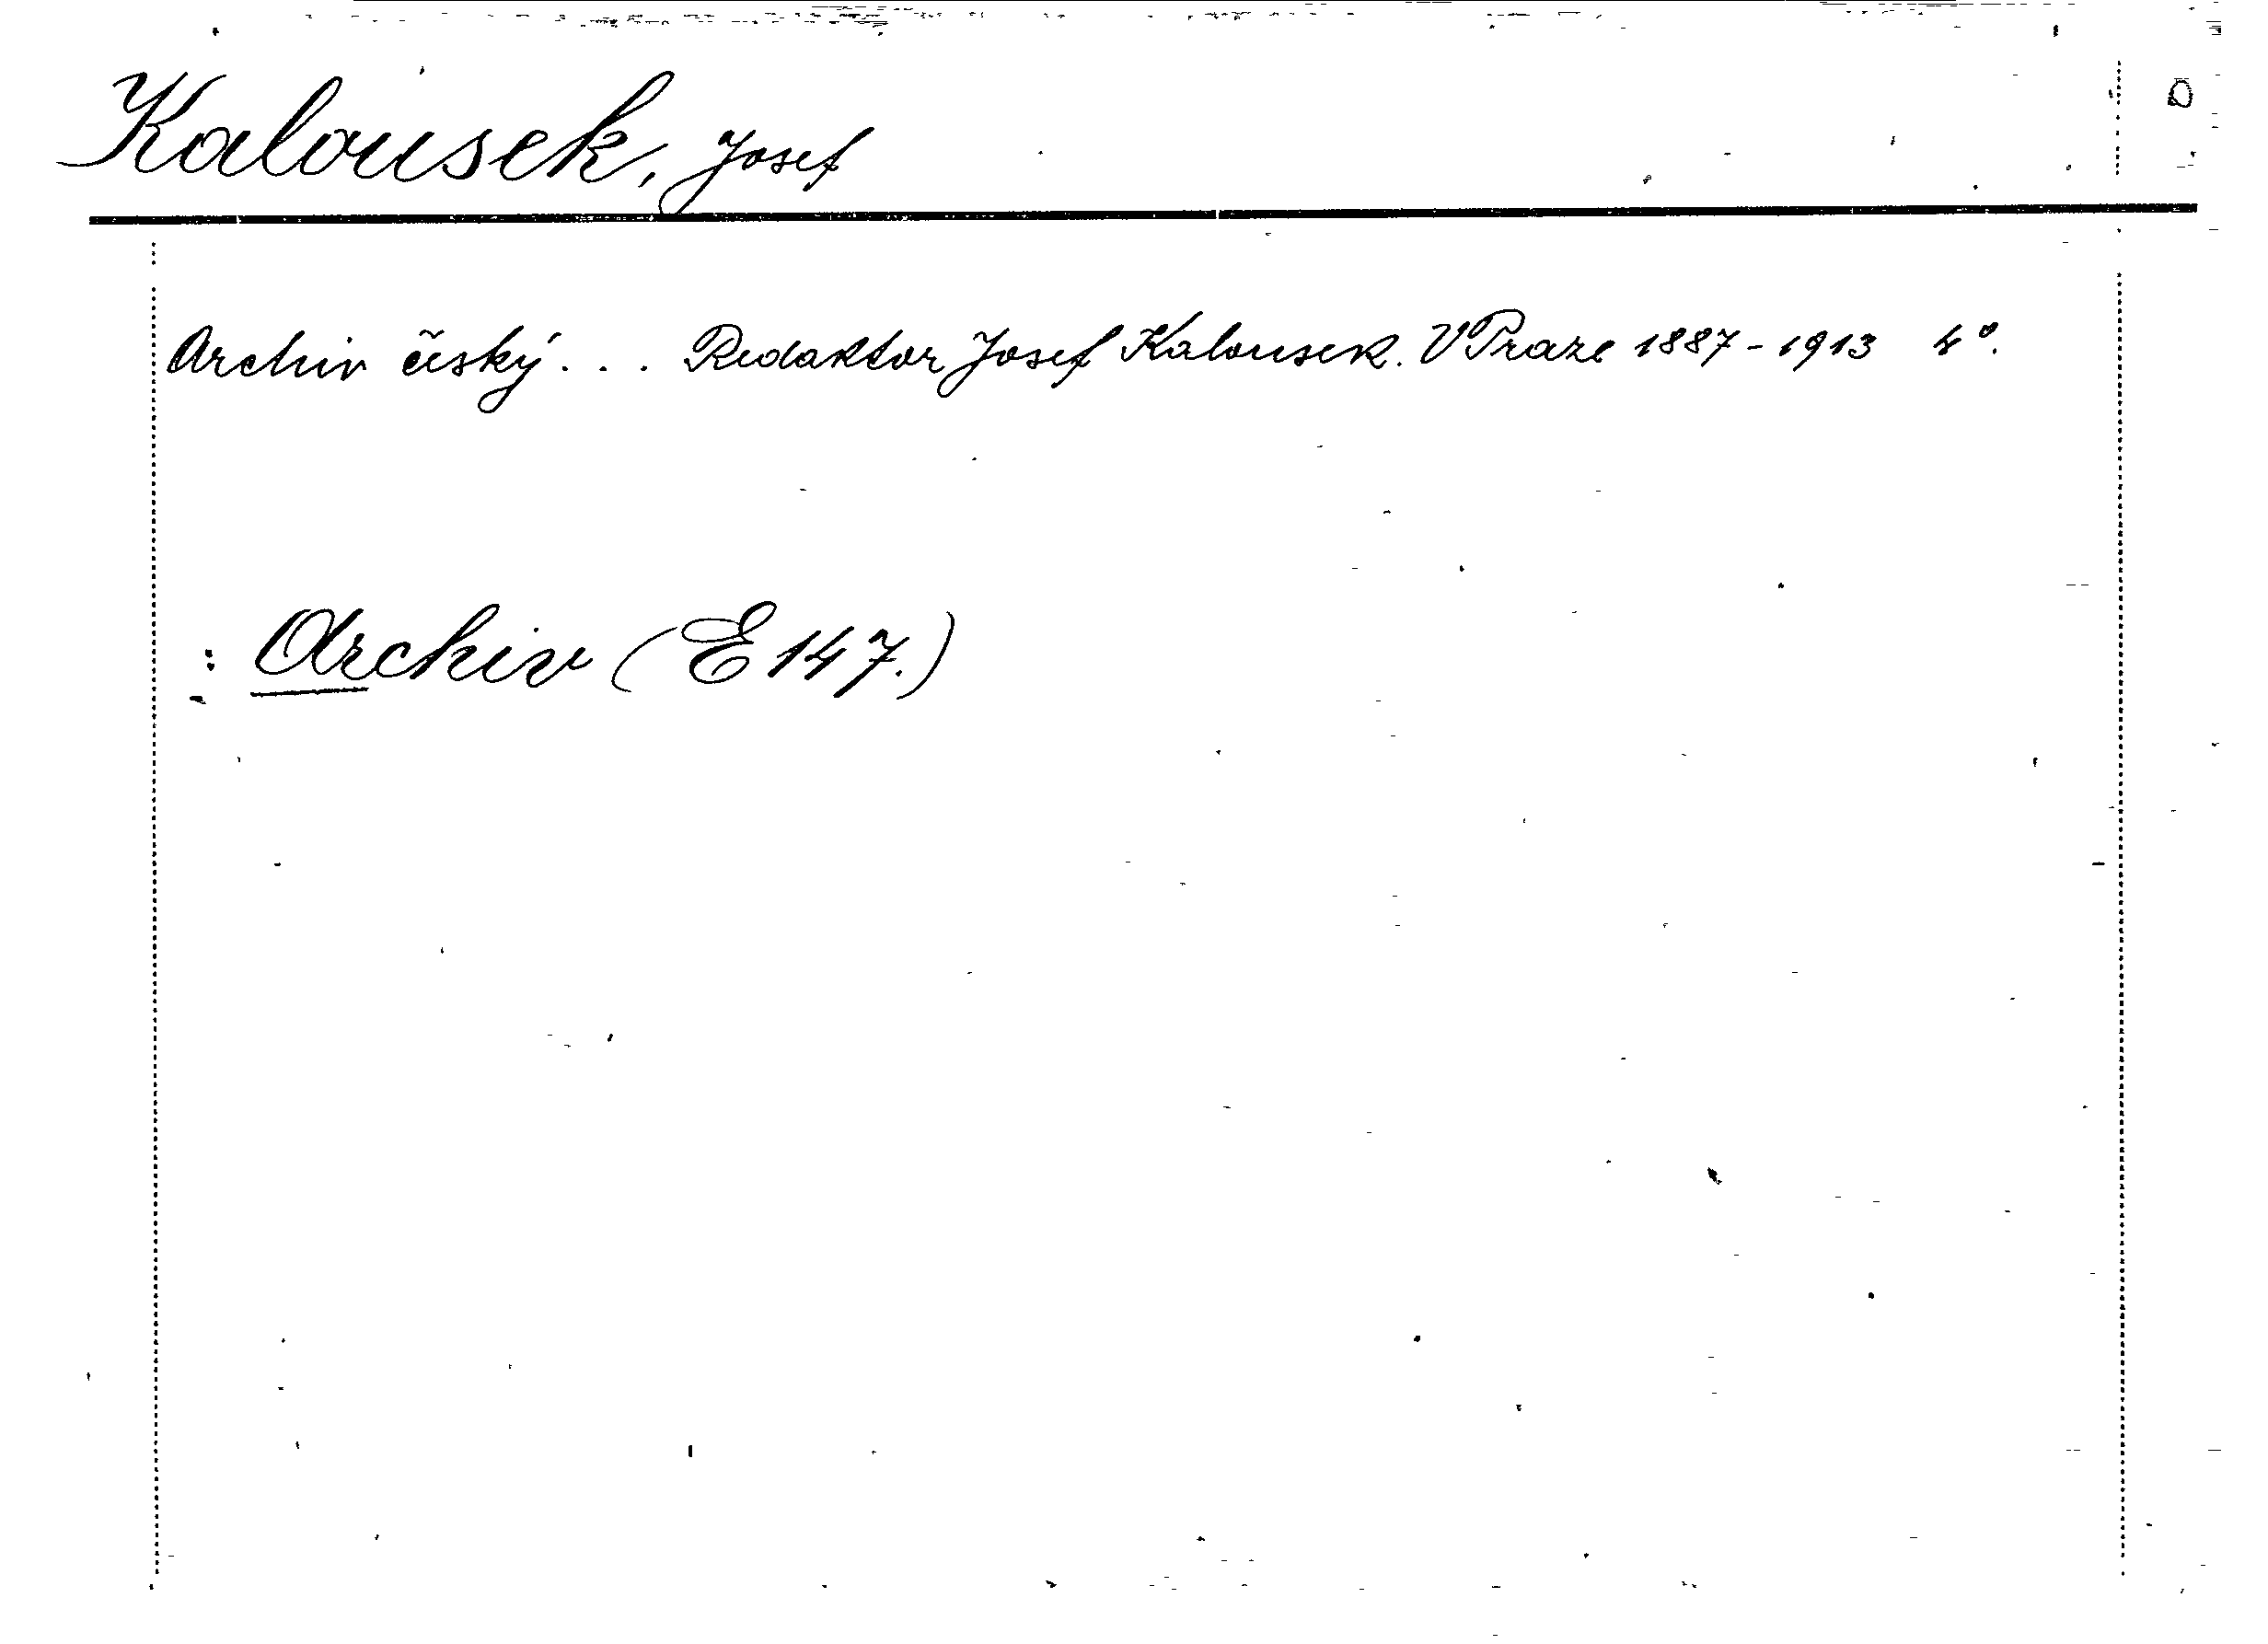 Kalousek, Josef
Archiv český... Redaktor Josef Kalousek. V Praze 1887-1913 4º.
: Archiv (E 147.)